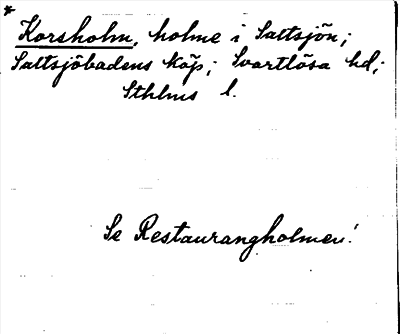 *
Korsholm, holme i Saltsjön;
Saltsjöbadens köp; Svartlösa hd;
Sthlms l.
Se Restaurangholmen!